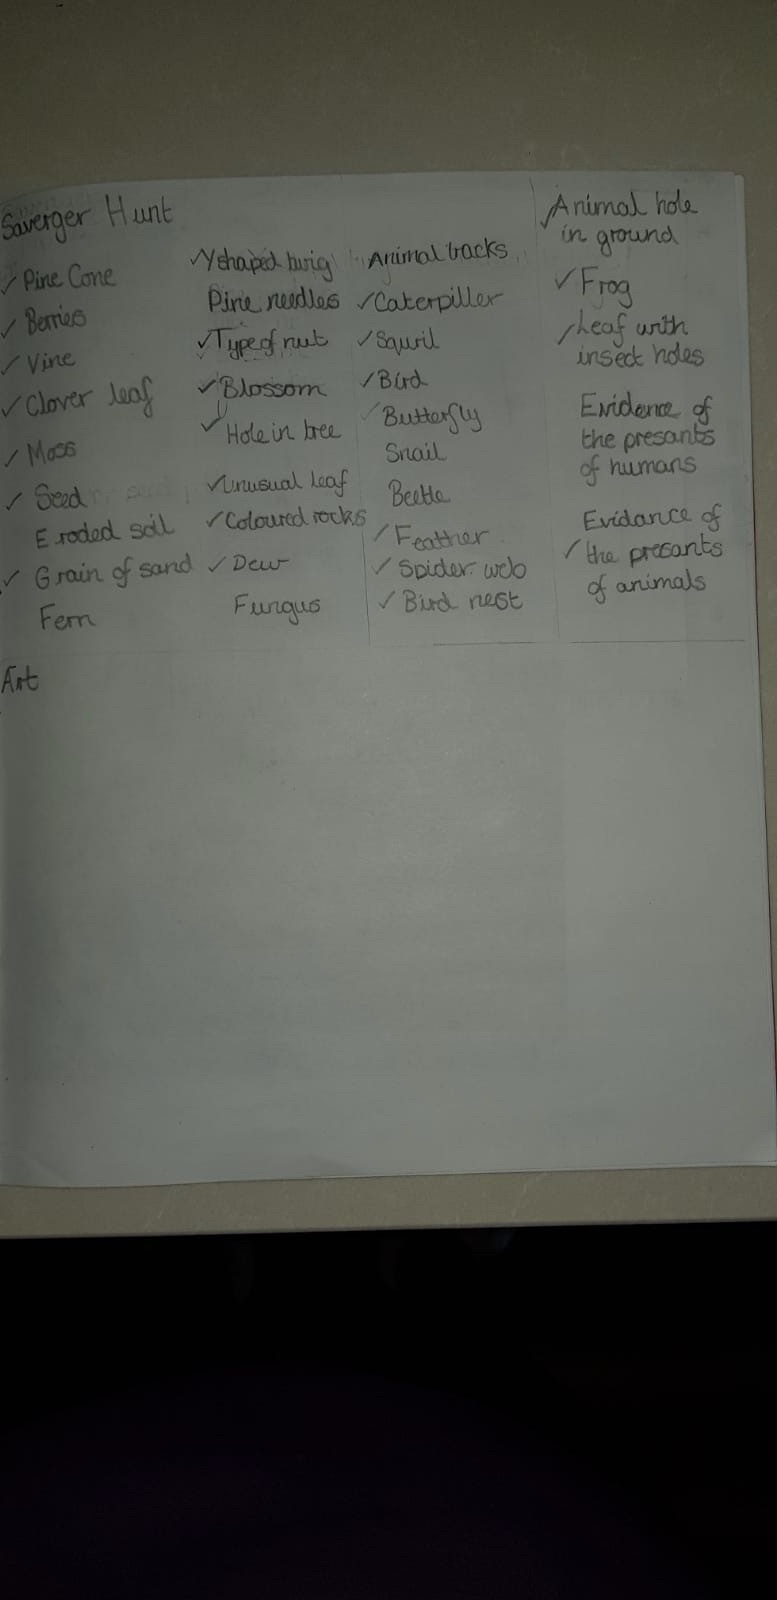 Saverger Hunt
✓ Pine Cone
✓ Berries
✓ Vine
✓ Clover leaf
✓ Moss
✓ Seed
Eroded soil
✓ Grain of sand
Fern
✓ Y shaped twig
Pine needles
✓ Type of nut
✓ Blossom
✓ Hole in tree
✓ Unusual leaf
✓ Coloured rocks
✓ Dew
Fungus
Animal tracks
✓ Caterpiller
✓ Squril
✓ Bird
✓ Butterfly
Snail
Beetle
✓ Feather
✓ Spider web
✓ Bird nest
✓ Animal hole
in ground
✓ Frog
✓ Leaf with
insect holes
Evidence of
the presants
of humans
Evidance of
✓ the presants
of animals
Art